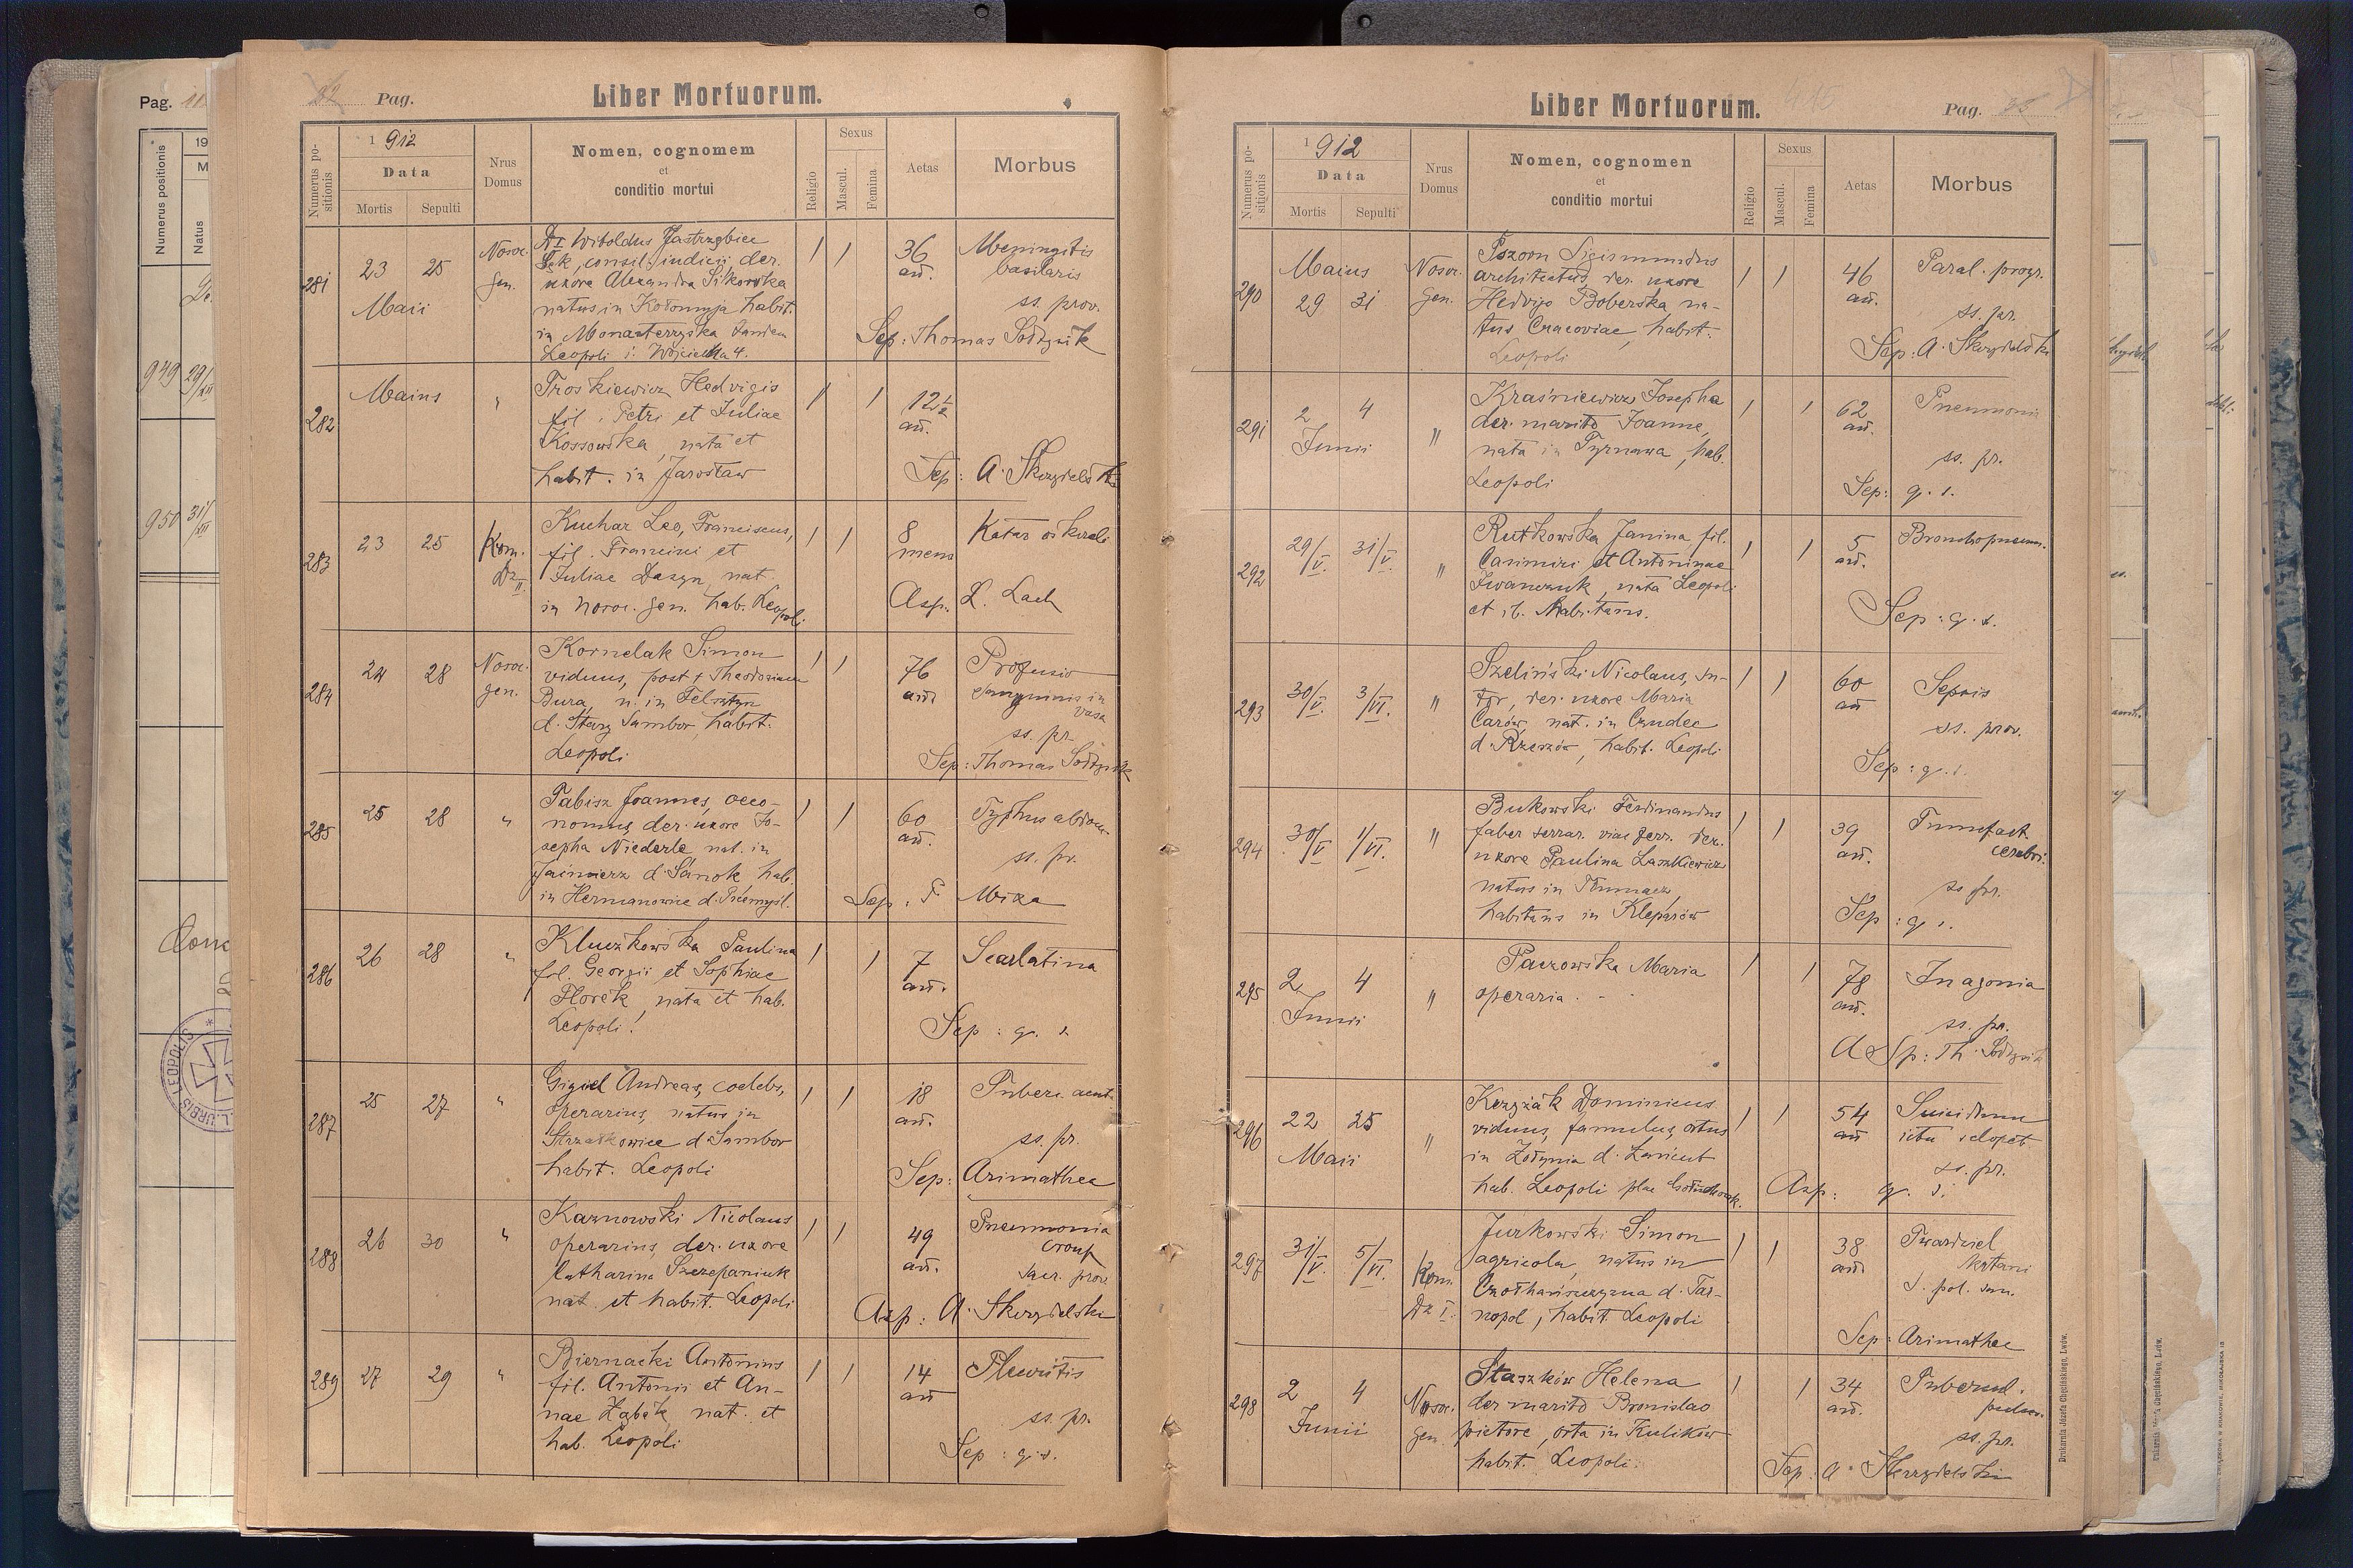 Pag. Liber Mortuorum.
Numerus positionis
1912
Data
Mortis Sepulti
Nrus Domus
Nomen, cognomem
et
conditio mortui
Religio
Sexus
Mascul.
Femina
Aetas
Morbus
281
23 25
Maii
Nosoc.
gen.
Dr Witoldus Jastrzębiec
Sęk, consil. iudicii, der.
uxore Alexandra Sikorska
natus in Kołomyja habit.
in Monasterzyska tandem
Leopoli i. Wojciecha 4.
36
an.
Meningitis
basilaris
ss. prov.
Sep: Thomas Sołtysik
282
Maius
"
Troskiewicz Hedvigis
fil. Petri et Juliae
Kossowska, nata et
habit. in Jarosław
12½
an.
Sep: A. Skrzydelski
283
23 25
Kom.
Dz. II
Kuchar Leo, Franciscus,
fil. Francisci et
Juliae Daszyn, nat.
in Nosoc. gen. hab. Leopoli
8
mens
Katar oskrzeli
Asp. L. Lach
284
24 28
Nosoc.
gen.
Kornelak Simon
viduus, post † Theodosiam
Bura, n. in Felsztyn
d. Stary Sambor, habit.
Leopoli
76
an.
Profusio
sanguinis in
vasa
ss. pr.
Sep: Thomas Sołtysik
285
25 28
"
Pabisz Joannes, oeco-
nomus, der. uxore Jo-
sepha Niederle nat. in
Jaćmierz d. Sanok hab.
in Hermanowice d. Przemyśl.
60
an.
Typhus abdom.
ss. pr.
Sep. P. Mixa
286
26 28
"
Kluczkowska Paulina
fil. Georgii et Sophiae
Florek, nata et hab.
Leopoli.
7
an.
Scarlatina
Sep: q. s.
287
25 27
"
Giguel Andreas, coelebs,
operarius, natus in
Strzałkowice d. Sambor
habit. Leopoli
18
an.
Tuberc. acut.
ss. pr.
Sep: Arimathea
288
26 30
"
Karnowski Nicolaus
operarius, der. uxore
Catharina Szczepaniuk
nat. et habit. Leopoli
49
an.
Pneumonia
croup
sacr. prov.
Asp: A. Skrzydelski
289
27 29
"
Biernacki Antonius
fil. Antonii et An-
nae Ząbek, nat. et
hab. Leopoli
14
an
Pleuritis
ss. pr.
Sep: q. s.
Liber Mortuorum. Pag.
Numerus positionis
1912
Data
Mortis Sepulti
Nrus Domus
Nomen, cognomen
et
conditio mortui
Religio
Sexus
Mascul.
Femina
Aetas
Morbus
290
Maius
29 31
Nosoc.
gen.
Pszorn Sigismundus
architectus, der. uxore
Hedvige Boberska na-
tus Cracoviae, habit.
Leopoli
46
an.
Paral. progr.
ss. pr.
Sep: A. Skrzydelski
291
2 4
Junii
"
Kraśniewicz Josepha
der. marito Joanne,
nata in Tyrnawa, hab.
Leopoli
62
an.
Pneumonia
ss. pr.
Sep: q. s.
292
29/V. 31/V.
"
Rutkowska Janina fil.
Casimiri et Antoninae
Iwanczuk, nata Leopoli
et ib. habitans.
5
an.
Bronchopneum.
Sep: q. s.
293
30/V. 3/VI.
"
Szeliński Nicolaus, su-
tor, der. uxore Maria
Carów, nat. in Czudec
d. Rzeszów, habit. Leopoli
60
an
Sepsis
ss. prov.
Sep: q. s.
294
30/V 1/VI.
"
Bukowski Ferdinandus
faber ferrar. viae ferr. der.
uxore Paulina Laszkiewicz
natus in Tłumacz,
habitans in Kleparów
39
an.
Tumefact.
cerebri.
ss. pr.
Sep: q. s.
295
2 4
Junii
"
Paczowska Maria
operaria.
78
an.
In agonia
ss. pr.
Asp: Th. Sołtysik
296
22 25
Maii
"
Krzyżak Dominicus
viduus, famulus, ortus
in Żołynia d. Łańcut
hab. Leopoli plac Gołuchowsk.
54
an
Suicidium
ictu sclopet.
ss. pr.
Asp: q. s.
297
31/V. 5/VI.
Kom.
Dz I.
Jurkowski Simon
agricola, natus in
Czołhańszczyzna d. Tar-
nopol, habit. Leopoli
38
an.
Twardziel
krtani
S. pol. in.
Sep: Arimathea
298
2 4
Junii
Nosoc.
gen.
Staszków Helena
der marito Bronislao
pictore, orta in Kulików
habit. Leopoli.
34
an.
Tubercul.
pulm.
ss. pr.
Sep: A. Skrzydelski
Drukarnia Józefa Chęcińskiego, Lwów.
Pag.
Numerus positionis
19
M
Natus
949 29/XII
950 31/XII